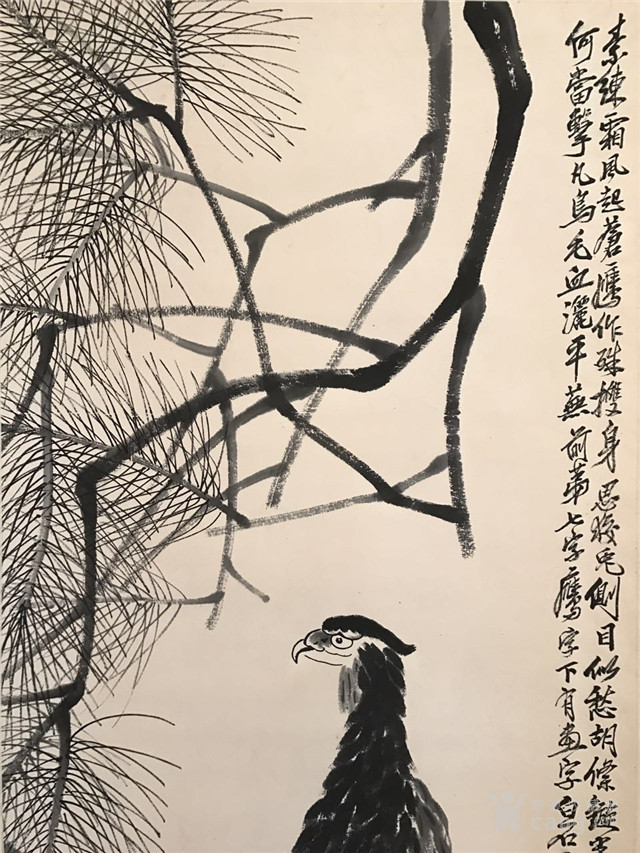 素練霜風起蒼鷹作殊㩳身思狡兔側目似愁胡絛鏇
何當擊凡鳥毛血灑平蕪前第七字鷹字下有畫字白石